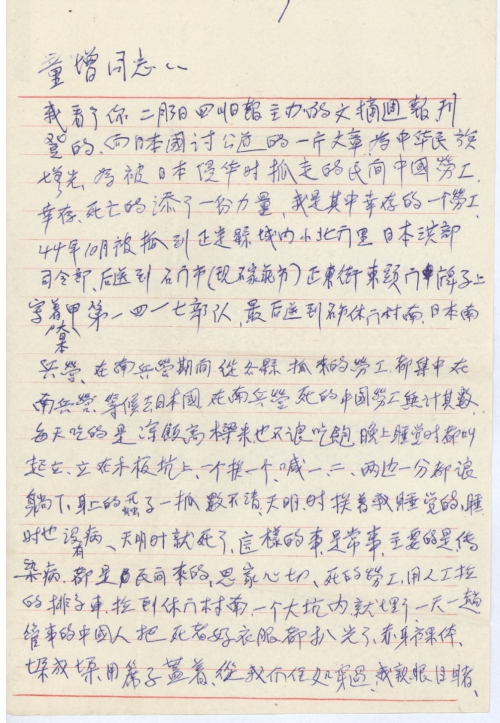 童增同志：
我看了你二月 日 报主办的文摘週報刊
登的、向日本國讨公道的一片文章，为中华民族
增光，为被日本侵华时抓走的民间中國劳工、
幸存、死亡的添了一份力量，我是其中幸存的一个劳工、
44年10月被抓到正定縣城内小北门里日本洪部
司令部、后送到石门市(现石家庄市)正东街东頭门牌子上
写着日本甲第一四一七部队，最后送到 休门村南、日本南
兵營、在南兵營期间從各縣抓来的劳工、都集中在
南兵營、等候去日本國、在南兵營死的中國劳工無计其数、
每天吃的是 高樑米也不让吃飽、晚上睡觉时都叫
起立、立在木板坑上、一个挨一个、喊一、二、两边一分都
躺下、身上的虱子一抓数不清、天明时挨着我睡觉的、睡
时也没有病、天明时就死了、這樣的事是常事、主要的是传
染病、都是民间来的、思家心切、死的劳工、用人工拉
的排子車、拉到休门村南一个大坑内就埋了、一天一趟
管事的中國人把死者好衣服都扒光了、赤身 体、
垛成垛用席子盖着、從我们住处穿過、我親眼目睹、